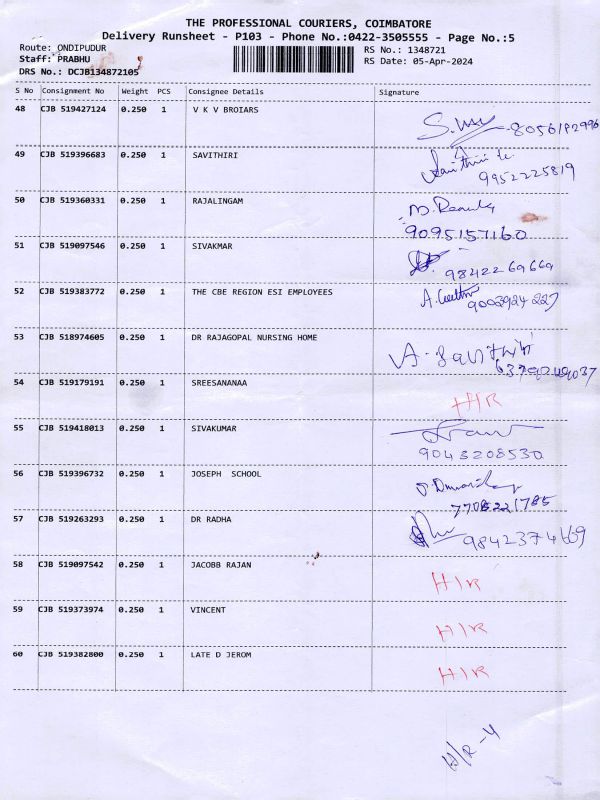 THE PROFESSIONAL COURIERS, COIMBATORE
Delivery Runsheet - P103 - Phone No.:0422-3505555 - Page No.:5
Route: ONDIPUDUR RS No.: 1348721
Staff: PRABHU RS Date: 05-Apr-2024
DRS No.: DCJB134872105
S No Consignment No Weight PCS Consignee Details Signature
48 CJB 519427124 0.250 1 V K V BROIARS
8056182996
49 CJB 519396683 0.250 1 SAVITHIRI
9952225819
50 CJB 519360331 0.250 1 RAJALINGAM
9095157160
51 CJB 519097546 0.250 1 SIVAKMAR
9842269669
52 CJB 519383772 0.250 1 THE CBE REGION ESI EMPLOYEES
9003924227
53 CJB 518974605 0.250 1 DR RAJAGOPAL NURSING HOME
54 CJB 519179191 0.250 1 SREESANANAA
H/R
55 CJB 519418013 0.250 1 SIVAKUMAR
9043208530
56 CJB 519396732 0.250 1 JOSEPH SCHOOL
7708221785
57 CJB 519263293 0.250 1 DR RADHA
9842374669
58 CJB 519097542 0.250 1 JACOBB RAJAN
H/R
59 CJB 519373974 0.250 1 VINCENT
H/R
60 CJB 519382800 0.250 1 LATE D JEROM
H/R
H/R-4